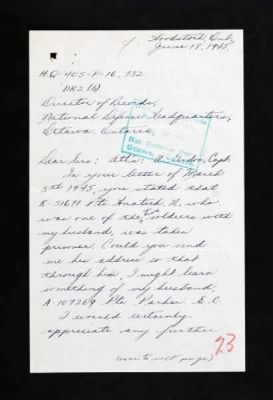 Woodstock Ont,
June 18, 1945.
H.Q-405-P-16,932
DR2(6)
Director of Records,
National Defence Headquarters,
Ottawa, Ontario.
Dear Sir: Attn: Capt.
In your letter of March
5th 1945, you stated that
K-51671 Pte Anatech, N. who
was one of the two soldiers with
my husband, was taken
prisoner. Could you send
me his address so that
through him, I might learn
something of my husband,
A-107269 Pte. Parker. E.C.
I would certainly
appreciate any further
23
(over to next page)